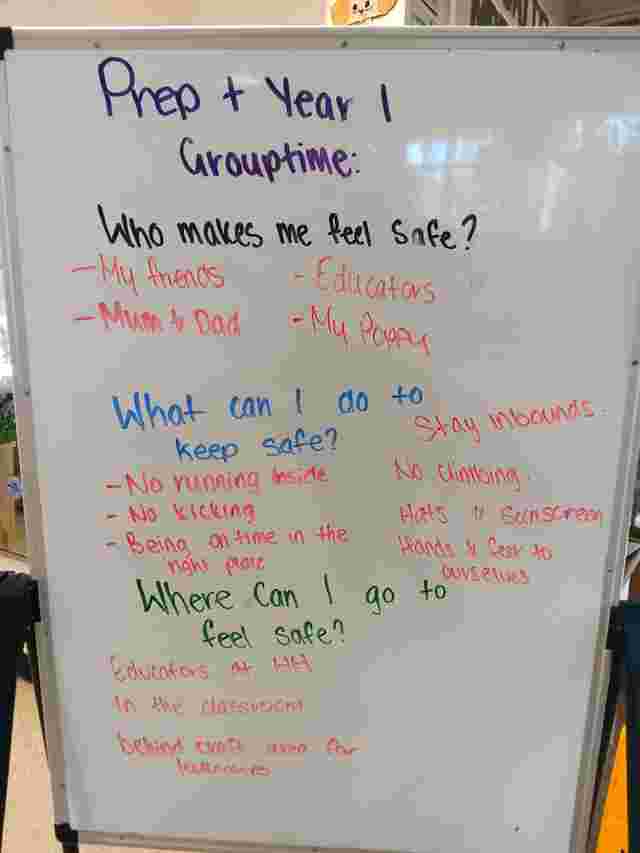 Prep + Year 1
Grouptime:
Who makes me feel safe?
- My friends
- Educators
- Mum & Dad
- My Poppy
What can I do to
keep safe?
- No running inside
- No kicking
- Being on time in the
right place
Stay inbounds.
No climbing.
Hats & Sunscreen
Hands & feet to
ourselves
Where can I go to
feel safe?
Educators at HH
In the classroom
behind area for